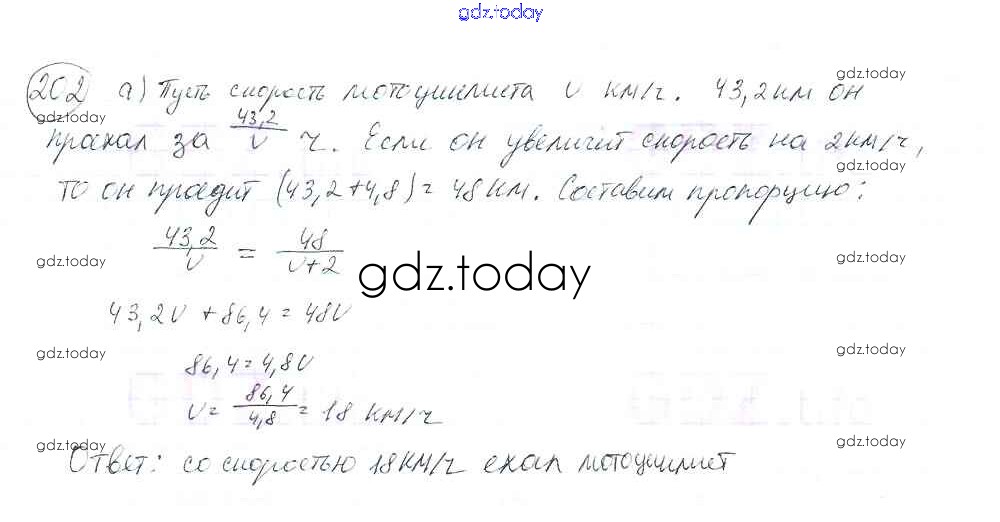 gdz.today
gdz.today
202 а) Пусть скорость мотоциклиста v км/ч. 43,2 км он
gdz.today
проехал за 43,2/v ч. Если он увеличит скорость на 2 км/ч,
gdz.today
то он проедит (43,2+4,8) = 48 км. Составим пропорцию:
43,2/v = 48/v+2
gdz.today
gdz.today
gdz.today
43,2v + 86,4 = 48v
gdz.today
gdz.today
86,4 = 4,8v
v = 86,4/4,8 = 18 км/ч
gdz.today
gdz.today
Ответ: со скоростью 18 км/ч ехал мотоциклист